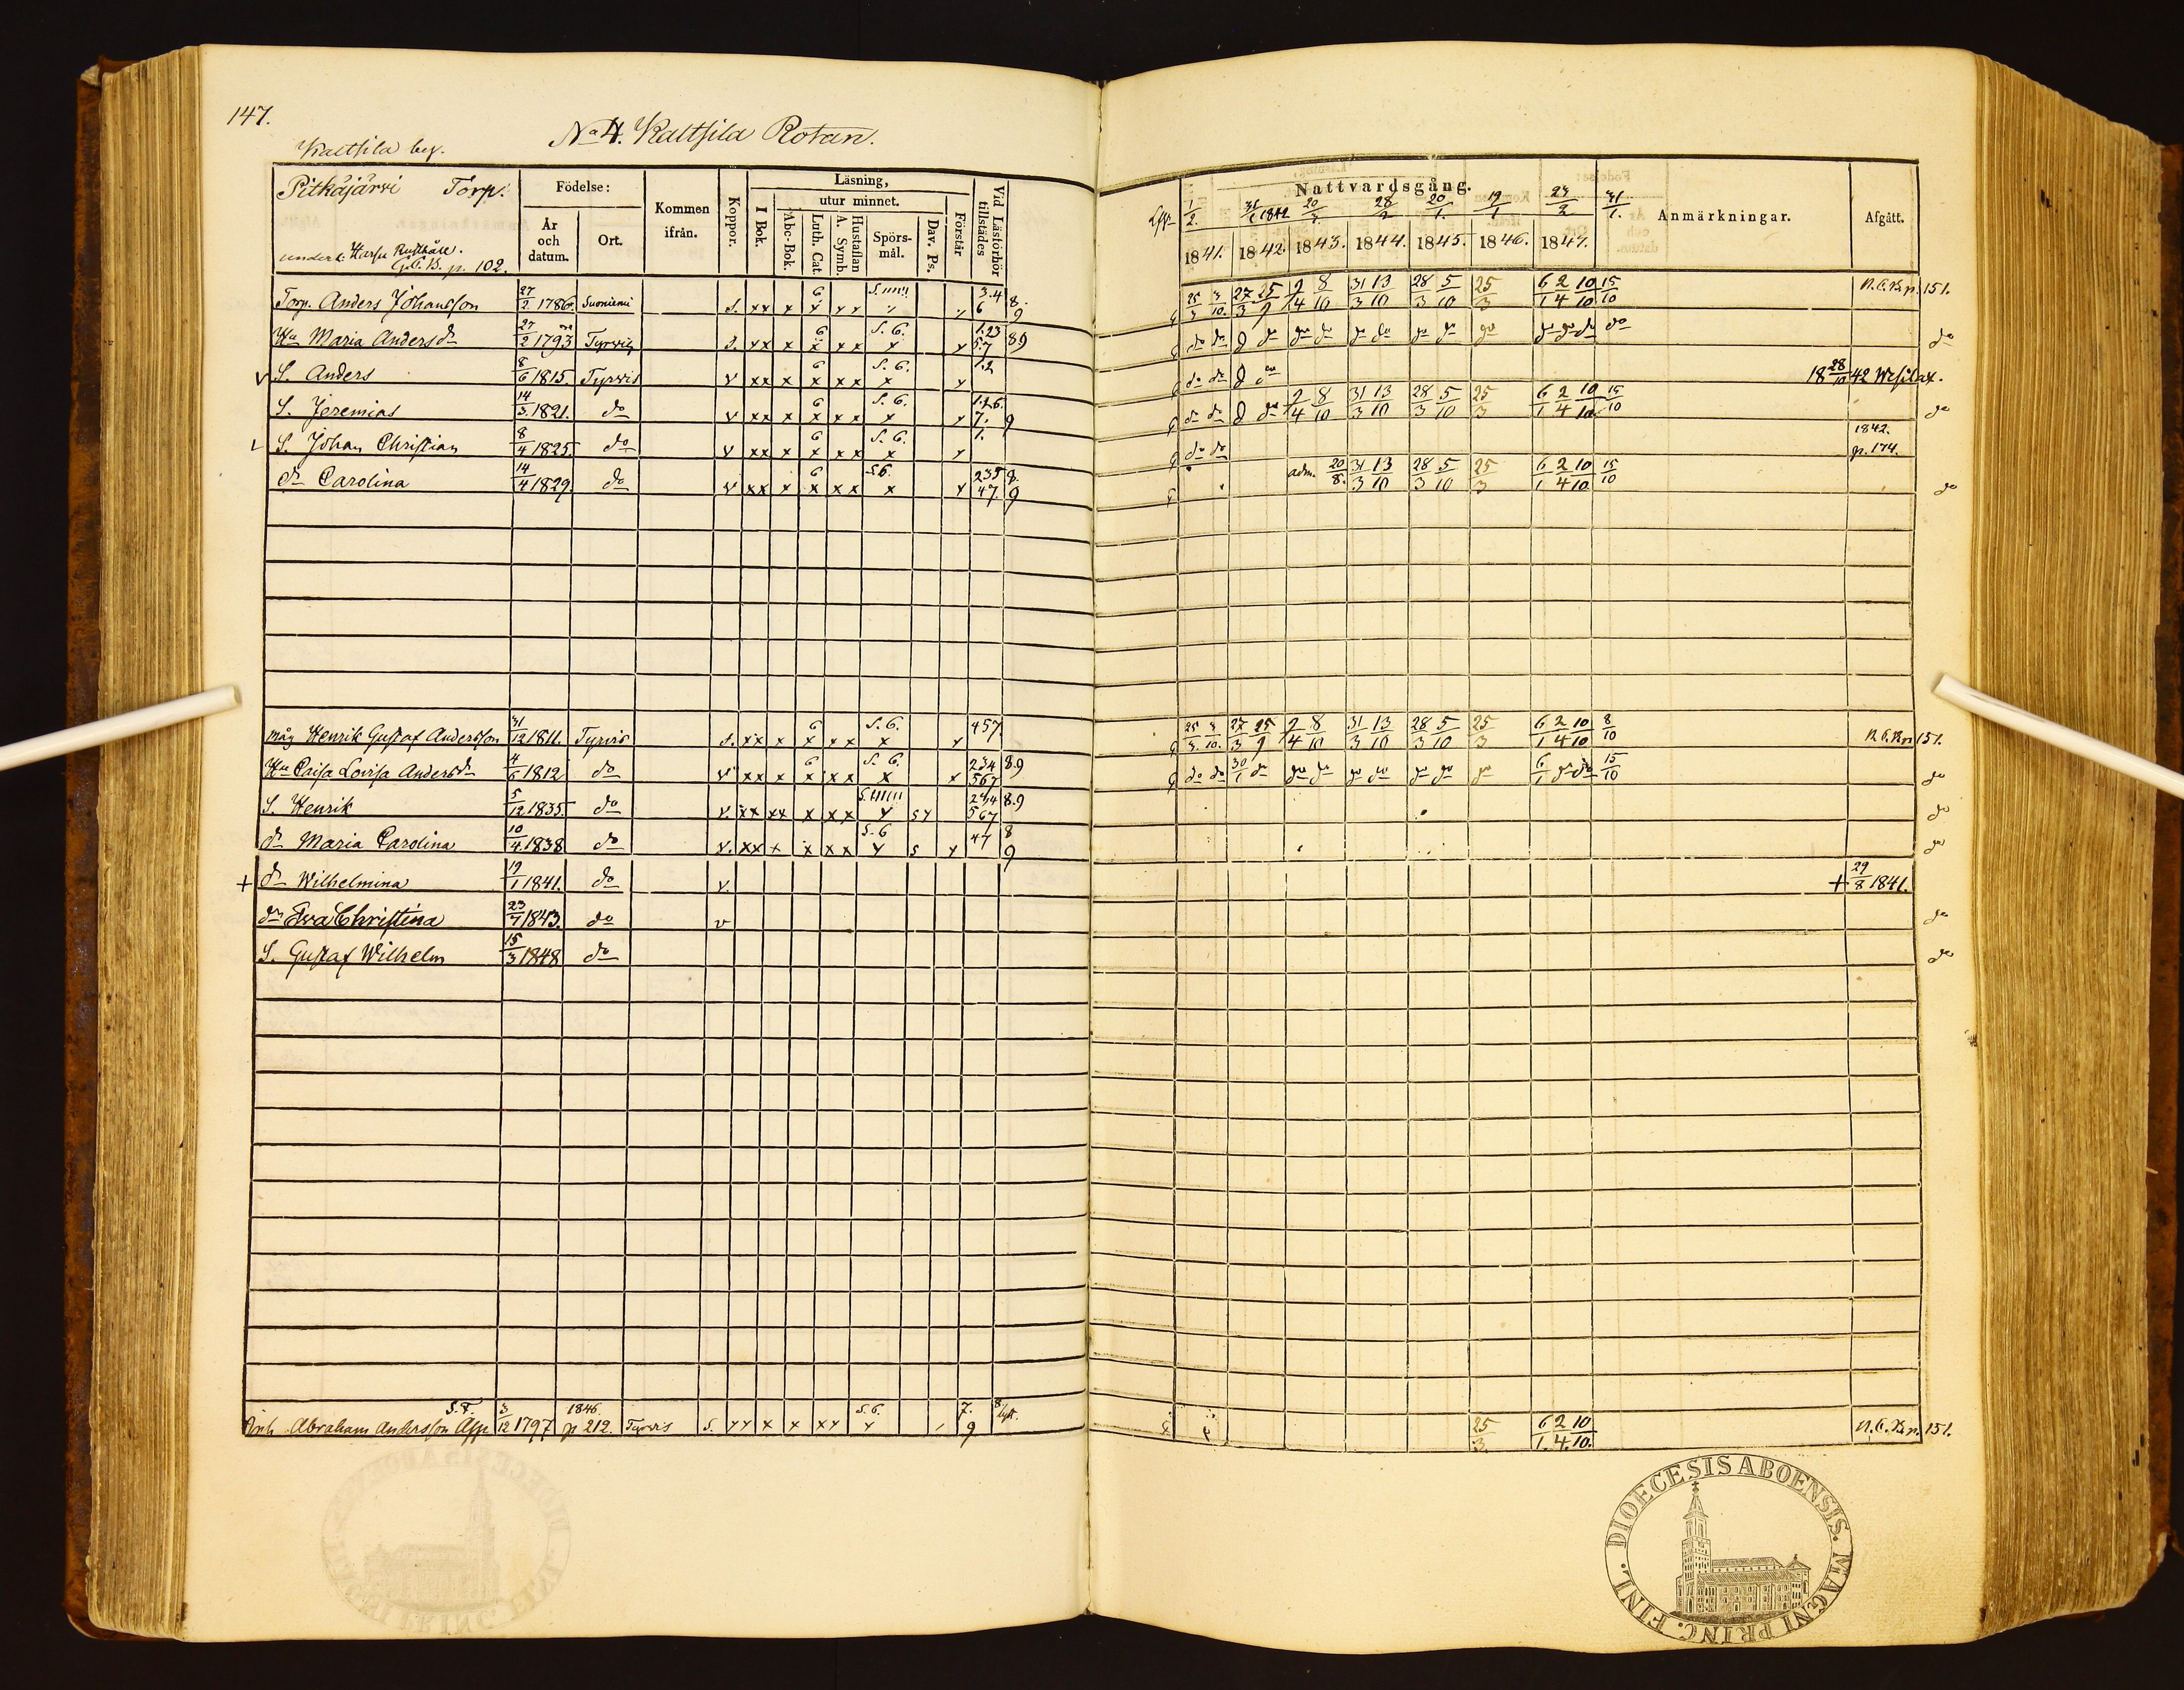 147.
No 4. Kaltsila Rotan.
Kaltsila by.
Pitkäjärvi Torp.
under: Karsu Rusthåll.
G. C. B. p. 102.
Födelse:
År och datum.
Ort.
Kommen ifrån.
Koppor.
Läsning,
I Bok.
utur minnet.
Abc-Bok.
Luth. Cat.
A. Symb.
Hustaflan
Spörsmål.
Dav. Ps.
Förstår
Vid Läsförhör tillstädes
Nattvardsgång.
1/2. 31/1 1842 20/3. 28/2 20/1. 19/1 23/2 31/1.
1841. 1842. 1843. 1844. 1845. 1846. 1847.
Anmärkningar.
Afgått.
Torp. Anders Johansson 27/2 1786 Suoniemi s. xx x 6 3.4 6 8. 9 25/3 3/10. 27/3 25/9 2/4 8/10 31/3 13/10 28/3 5/10 25/3 6/1 2/4 10/10 15/10 N.C.B. p. 151.
Hu Maria Andersdr 27/2 1793 Tyrvis s. xx x 6 x xx S. 6. x x 1.23 5.7 89 do do do do do do do do do do do do do do do
S. Anders 8/6 1815. Tyrvis v xx x 6 x xx S. 6. x x 1.2 do do do 18 28/10 42 Wesilax.
S. Jeremias 14/3. 1821. do v xx x 6 x xx S. 6. x x 1.2.6. 7. 9 do do do 2/4 8/10 31/3 13/10 28/3 5/10 25/3 6/1 2/4 10/10 15/10 do
L S. Johan Christian 8/4 1825. do v xx x 6 x xx S. 6. x x 1. do do 1842. p. 174.
dr Carolina 14/4 1829. do v xx x 6 x xx S. 6. x x 235 47 8. 9 adm. 20/8. 31/3 13/10 28/3 5/10 25/3 6/1 2/4 10/10 15/10 do
måg Henrik Gustaf Andersson 31/12 1811. Tyrvis s. xx x 6 x xx S. 6. x x 457. 25/3. 3/10. 27/3 25/9 2/4 8/10 31/3 13/10 28/3 5/10 25/3 6/1 2/4 10/10 8/10 N.C.B. p. 151.
Hu Caisa Lovisa Andersdr 4/6 1812 do v xx x 6 x xx S. 6. x x 234 567 89 do do 30/1 do do do do do do do do 6/1 do do 15/10 do
S. Henrik 5/12 1835. do v. xx xx x xx x sx 234 567 8.9 do
dr Maria Carolina 10/4. 1838 do v. xx x x xx S. 6 x s x 47 8 9 do
+ dr Wilhelmina 19/1 1841. do v. + 29/8 1841.
dr Eva Christina 23/7 1843. do v do
S. Gustaf Wilhelm 15/3 1848 do do
Inh. Abraham Andersson App S.F. 3/12 1797 1846 p 212. Tyrvis s. xx x x xx S. 6. x 7. 9 8 25/3. 6/1. 2/4. 10/10. N.C.B. p. 151.
DIOECESIS ABOENSIS. MAGNI PRINC. FINL.